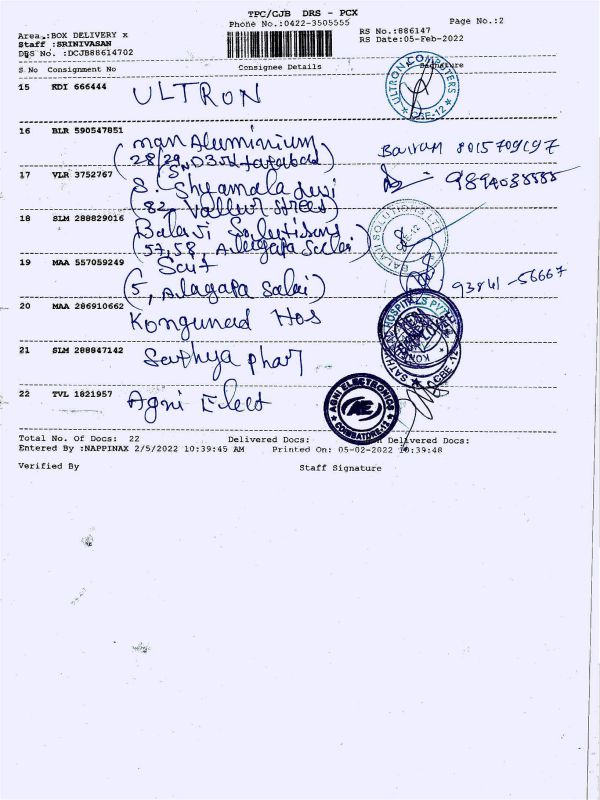 TPC/CJB DRS - PCX
Phone No.:0422-3505555
Page No.:2
Area :BOX DELIVERY x
RS No.:886147
Staff :SRINIVASAN
RS Date:05-Feb-2022
DRS No. :DCJB88614702
S No Consignment No Consignee Details Signature
15 KDI 666444 ULTRON
ULTRON COMPUTERS
CBE-12
16 BLR 590547851
man Aluminium
Bairam 8015709197
17 VLR 3752767
S. Shyamala devi
9894038555
(82, Vallur street)
18 SLM 288829016
Balaji Solutions
(57,58, Alagapa Salai)
BALAJI SOLUTIONS
CBE-12
19 MAA 557059249
(5, Alagapa Salai)
93841-56667
20 MAA 286910662
Kongunad Hos
21 SLM 288847142
Sathya phar
HOSPITALS PVT
CBE-12
22 TVL 1821957
Agni Elect
AGNI ELECTRONICS
AE
COIMBATORE-12
Total No. Of Docs: 22 Delivered Docs: Delivered Docs:
Entered By :NAPPINAX 2/5/2022 10:39:45 AM Printed On: 05-02-2022 10:39:48
Verified By Staff Signature